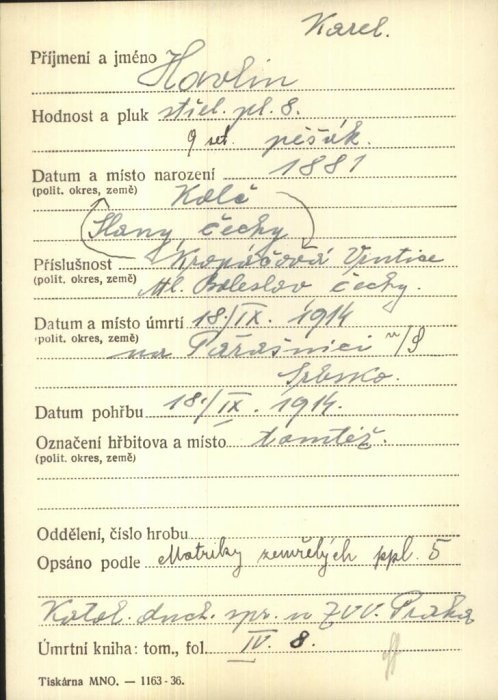 Karel.
Příjmení a jméno Havlin
Hodnost a pluk střel. pl. 8.
9 set. pěšák.
Datum a místo narození 1881
(polit. okres, země) Kolč
Slany Čechy
Příslušnost Kropáčova Vrutice
(polit. okres, země) Ml. Boleslav Čechy.
Datum a místo úmrtí 18./IX. 1914
(polit. okres, země) na Parašnici n/S
Srbsko.
Datum pohřbu 18./IX. 1914.
Označení hřbitova a místo tamtéž.
(polit. okres, země)
Oddělení, číslo hrobu
Opsáno podle Matriky zemřelých ppl. 5
Katol. duch. spr. u ZVV. Praha
Úmrtní kniha: tom., fol. IV. 8.
Tiskárna MNO. — 1163-36.